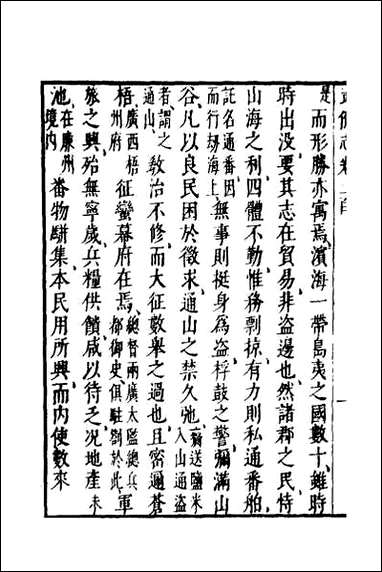 是而形勝亦寓焉濱海一帶島夷之國數十雖時
時出没要其志在貿易非盗邊也然諸郡之民恃
山海之利四體不勤惟務剽掠有力則私通番舶
託名通番因而行刼海上無事則挺身爲盗桴鼓之警彌滿山
谷凡以良民困於徵求通山之禁久弛送鹽米入山通盗
者謂之通山教治不修而大征數舉之過也且密邇蒼
梧廣西梧州府征蠻幕府在焉總督兩廣太監總兵都御史俱駐劄於此軍
旅之興殆無寧歲兵糧供饋咸以待之况地産未
池在廉州境内番物駢集本民用所興而内使數來